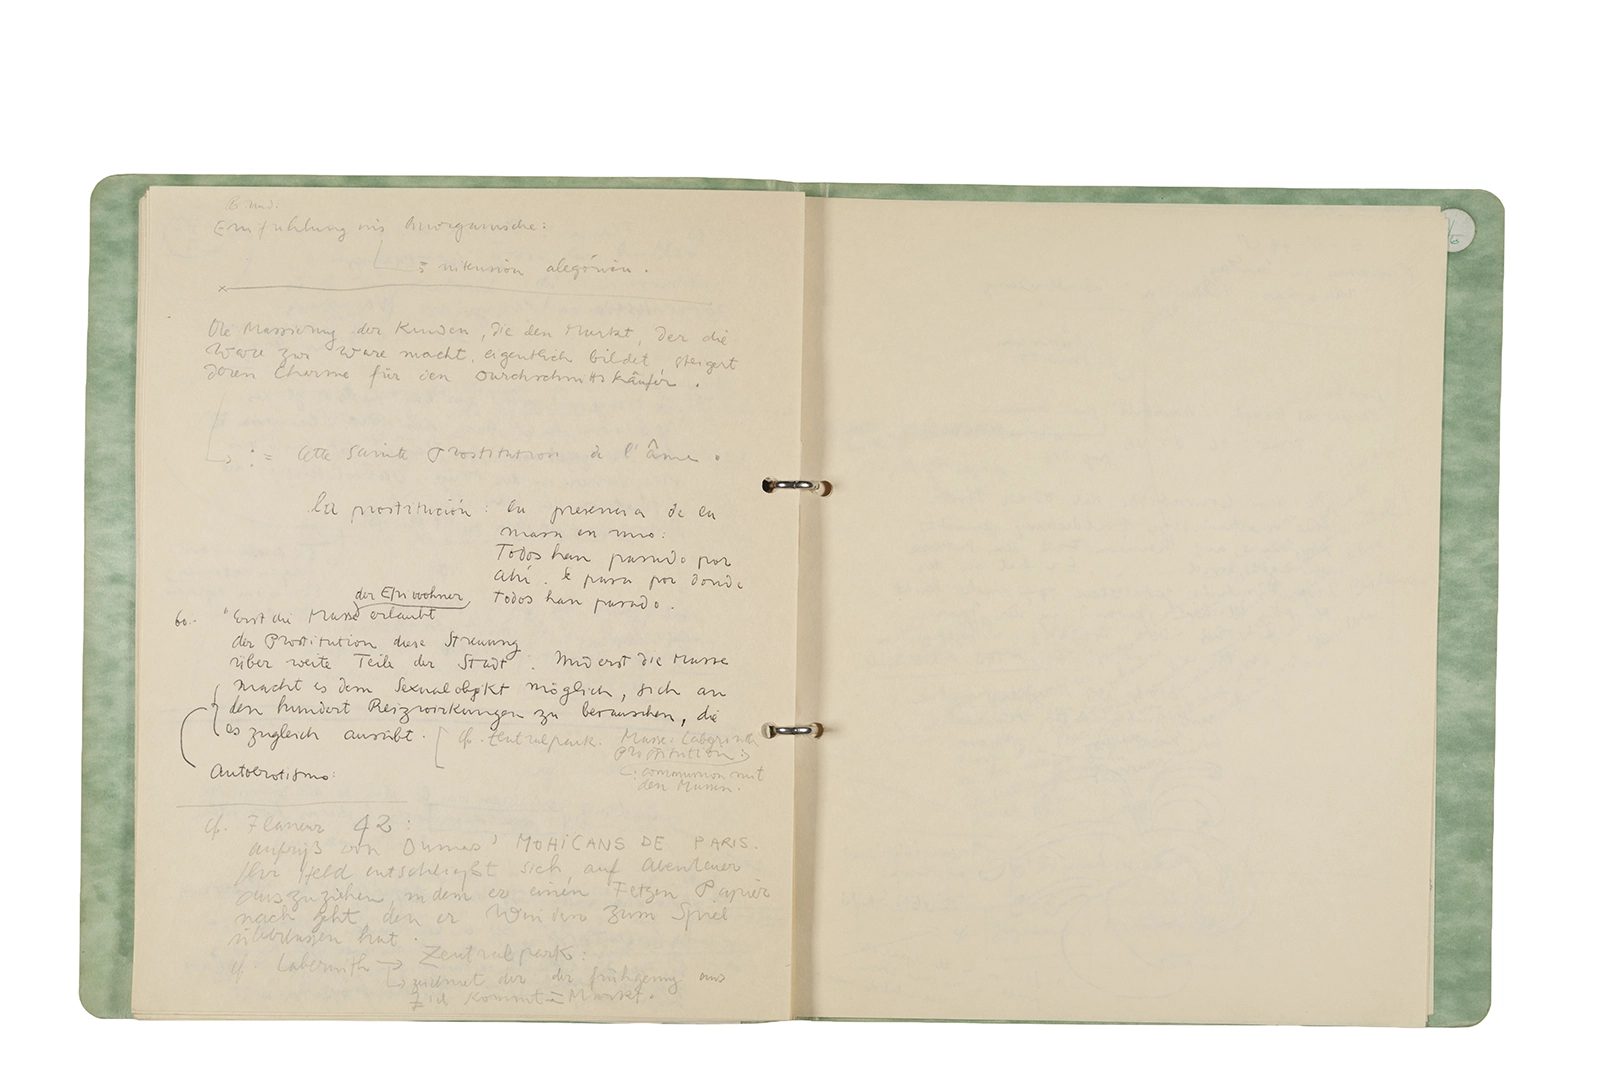 B. und.
Einfühlung ins Anorganische:
:= intención alegórica.
Die Massierung der Kunden, die den Markt, der die
Ware zur Ware macht, eigentlich bildet, steigert
deren Charme für den Durchschnittskäufer.
:= Cette Sainte Prostitution de l'âme.
la prostitución: la presencia de la
masa en uno:
Todos han pasado por
ahí. Se pasa por donde
todos han pasado.
der Einwohner
60.- "Erst die Masse erlaubt
der Prostitution diese Streuung
über weite Teile der Stadt. Und erst die Masse
macht es dem Sexualobjekt möglich, sich an
den hundert Reizwirkungen zu berauschen, die
es zugleich ausübt.
cf. Zentralpark: Masse: Labyrinth
Prostitution:
Autoerotismo:
communion mit
den Massen.
cf. Flaneur 42:
anfang von Dumas' MOHICANS DE PARIS.
Ihr Held entschließt sich, auf Abenteuer
auszuziehen, indem er einen Fetzen Papier
nach geht, den er Winden zum Spiel
überlassen hat.
cf. Labyrinth → Zentralpark:
der der frühgenug ans
Ziel kommt = Markt.